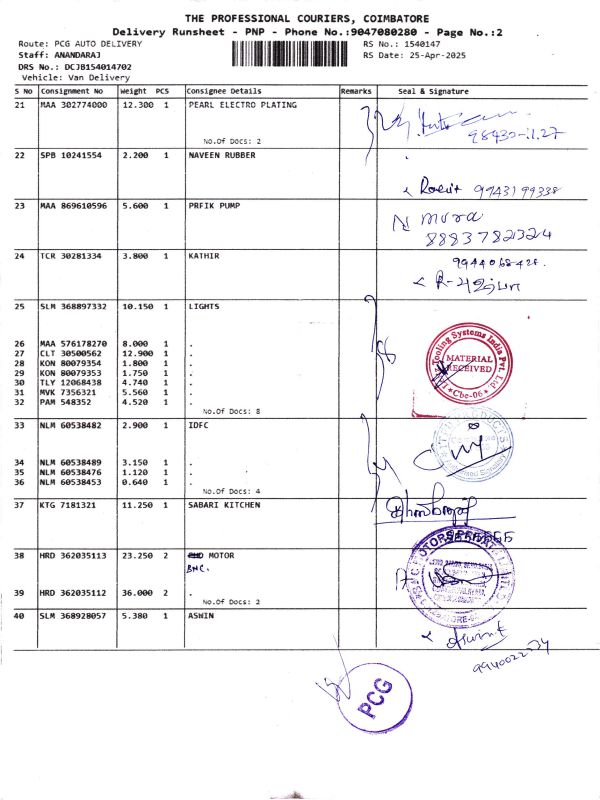 THE PROFESSIONAL COURIERS, COIMBATORE
Delivery Runsheet - PNP - Phone No.:9047080280 - Page No.:2
Route: PCG AUTO DELIVERY RS No.: 1540147
Staff: ANANDARAJ RS Date: 25-Apr-2025
DRS No.: DCJB154014702
Vehicle: Van Delivery
S No Consignment No Weight PCS Consignee Details Remarks Seal & Signature
21 MAA 302774000 12.300 1 PEARL ELECTRO PLATING
No.Of Docs: 2
22 SPB 10241554 2.200 1 NAVEEN RUBBER
9943199338
23 MAA 869610596 5.600 1 PRFIK PUMP
8883782324
24 TCR 30281334 3.800 1 KATHIR
25 SLM 368897332 10.150 1 LIGHTS
26 MAA 576178270 8.000 1 .
27 CLT 30500562 12.900 1 .
28 KON 80079354 1.800 1 .
29 KON 80079353 1.750 1 .
30 TLY 12068438 4.740 1 .
31 MVK 7356321 5.560 1 .
32 PAM 548352 4.520 1 .
No.Of Docs: 8
Tooling Systems India Pvt. Ltd
MATERIAL
RECEIVED
Cbe-06
33 NLM 60538482 2.900 1 IDFC
34 NLM 60538489 3.150 1 .
35 NLM 60538476 1.120 1 .
36 NLM 60538453 0.640 1 .
No.Of Docs: 4
37 KTG 7181321 11.250 1 SABARI KITCHEN
38 HRD 362035113 23.250 2 MOTOR
39 HRD 362035112 36.000 2 .
No.Of Docs: 2
40 SLM 368928057 5.380 1 ASWIN
PCG